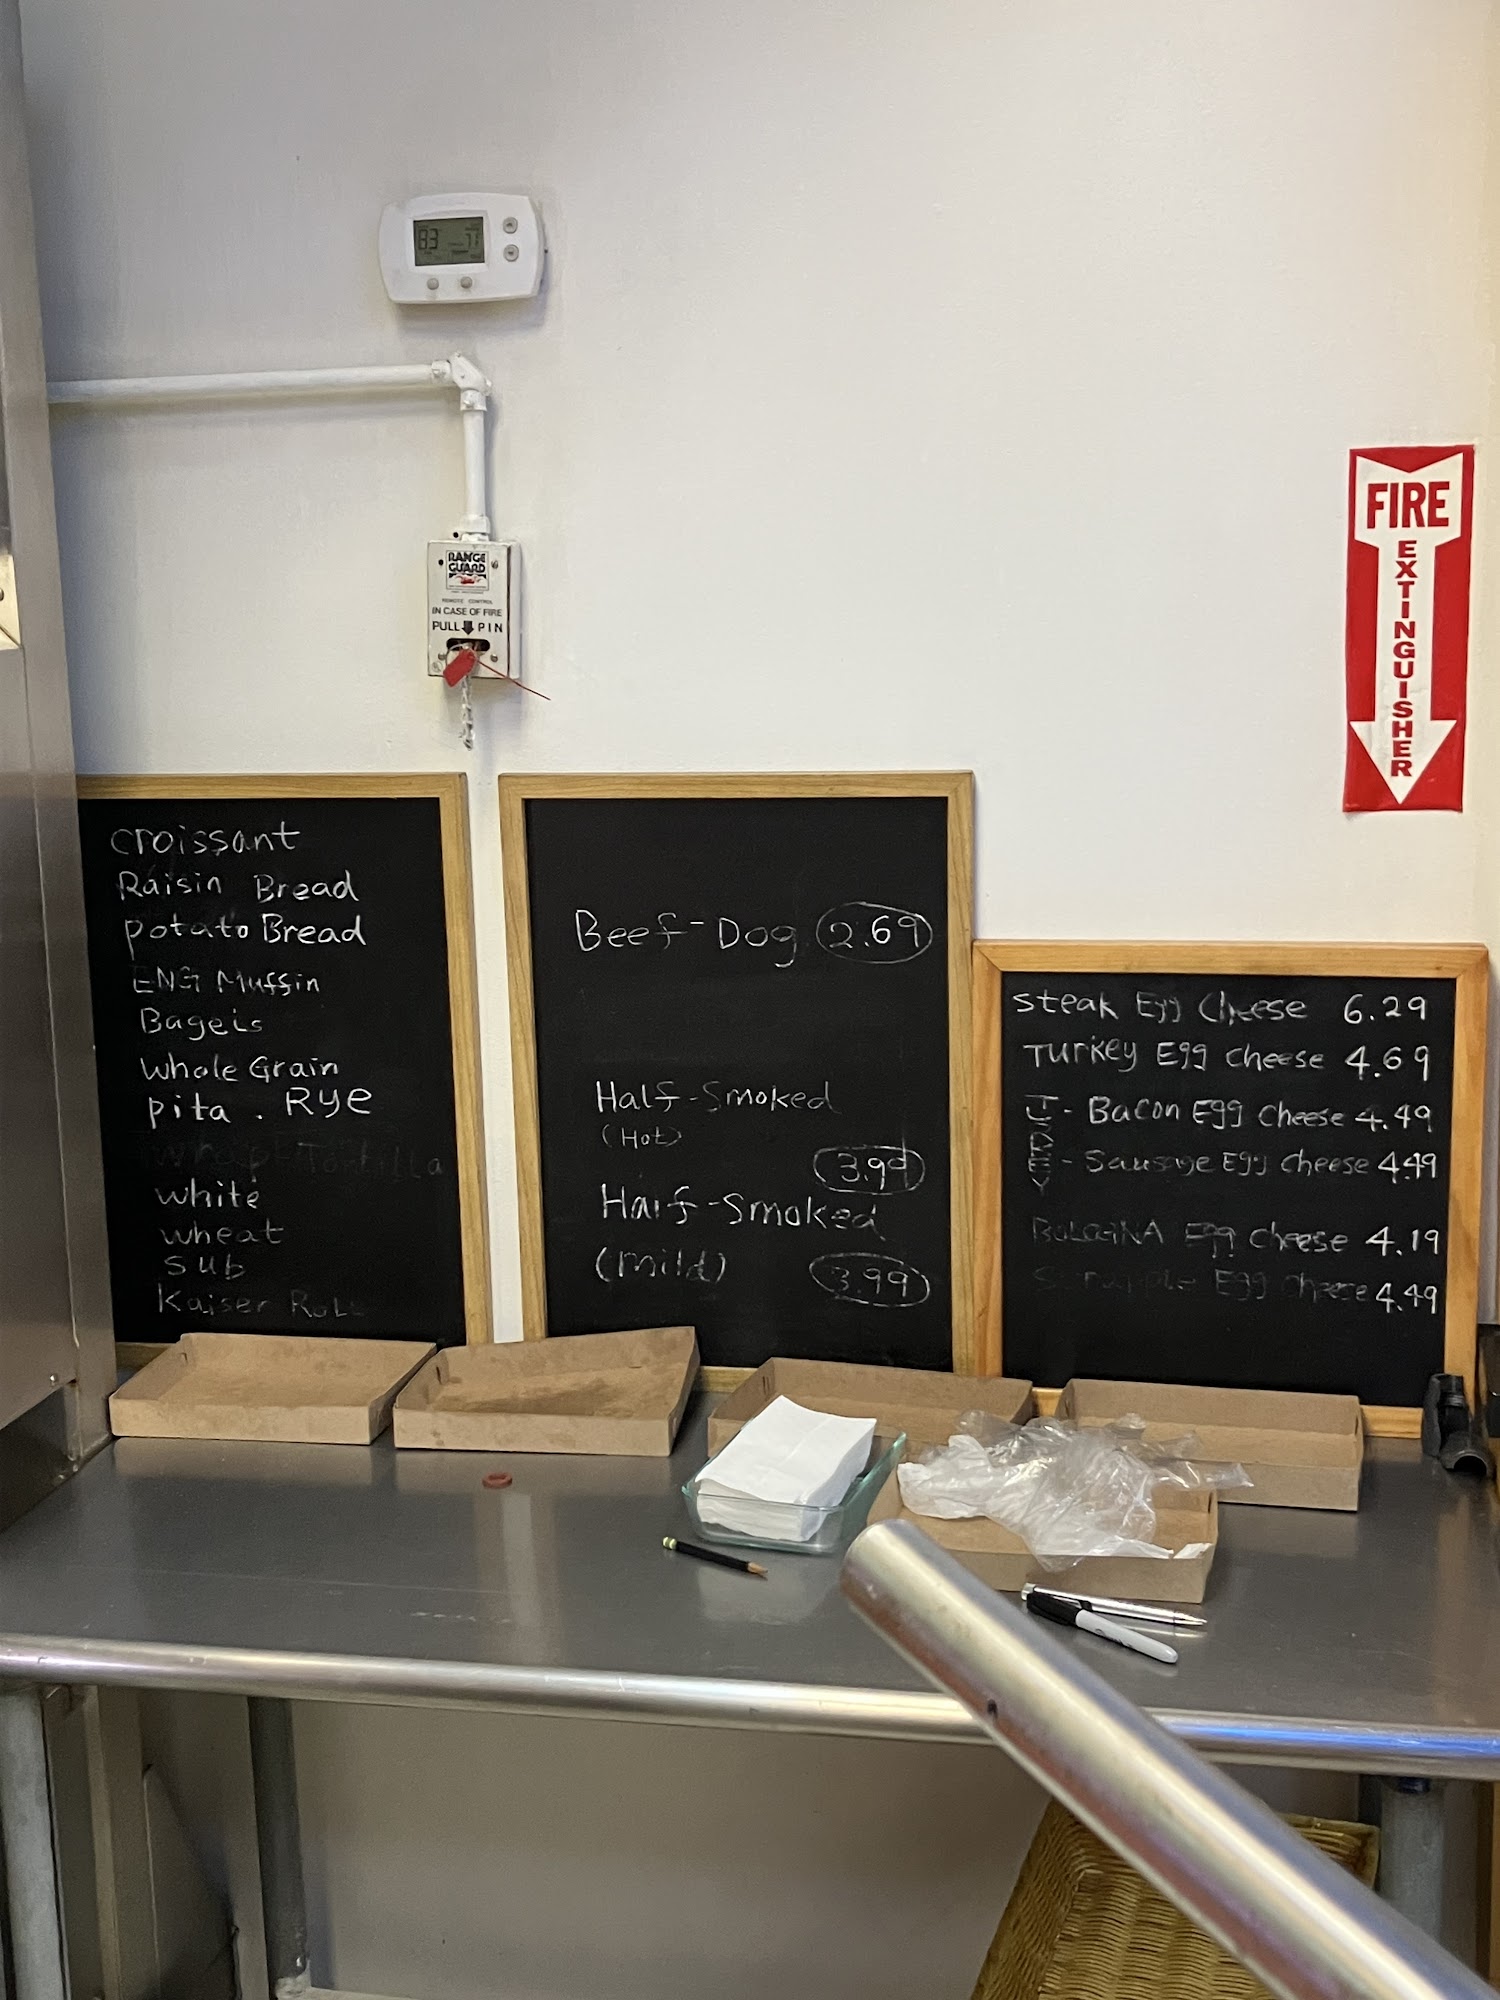 83 77
RANGE
GUARD
REMOTE CONTROL
IN CASE OF FIRE
PULL PIN
FIRE
EXTINGUISHER
croissant
Raisin Bread
potato Bread
ENG Muffin
Bagels
whole Grain
pita . Rye
whap - Tortilla
white
wheat
sub
Kaiser Roll
Beef-Dog 2.69
Half-Smoked
(Hot)
3.99
Half-Smoked
(Mild) 3.99
Steak Egg Cheese 6.29
Turkey Egg Cheese 4.69
TURKEY
- Bacon Egg Cheese 4.49
- Sausage Egg Cheese 4.49
BOLOGNA Egg Cheese 4.19
Scrapple Egg Cheese 4.49